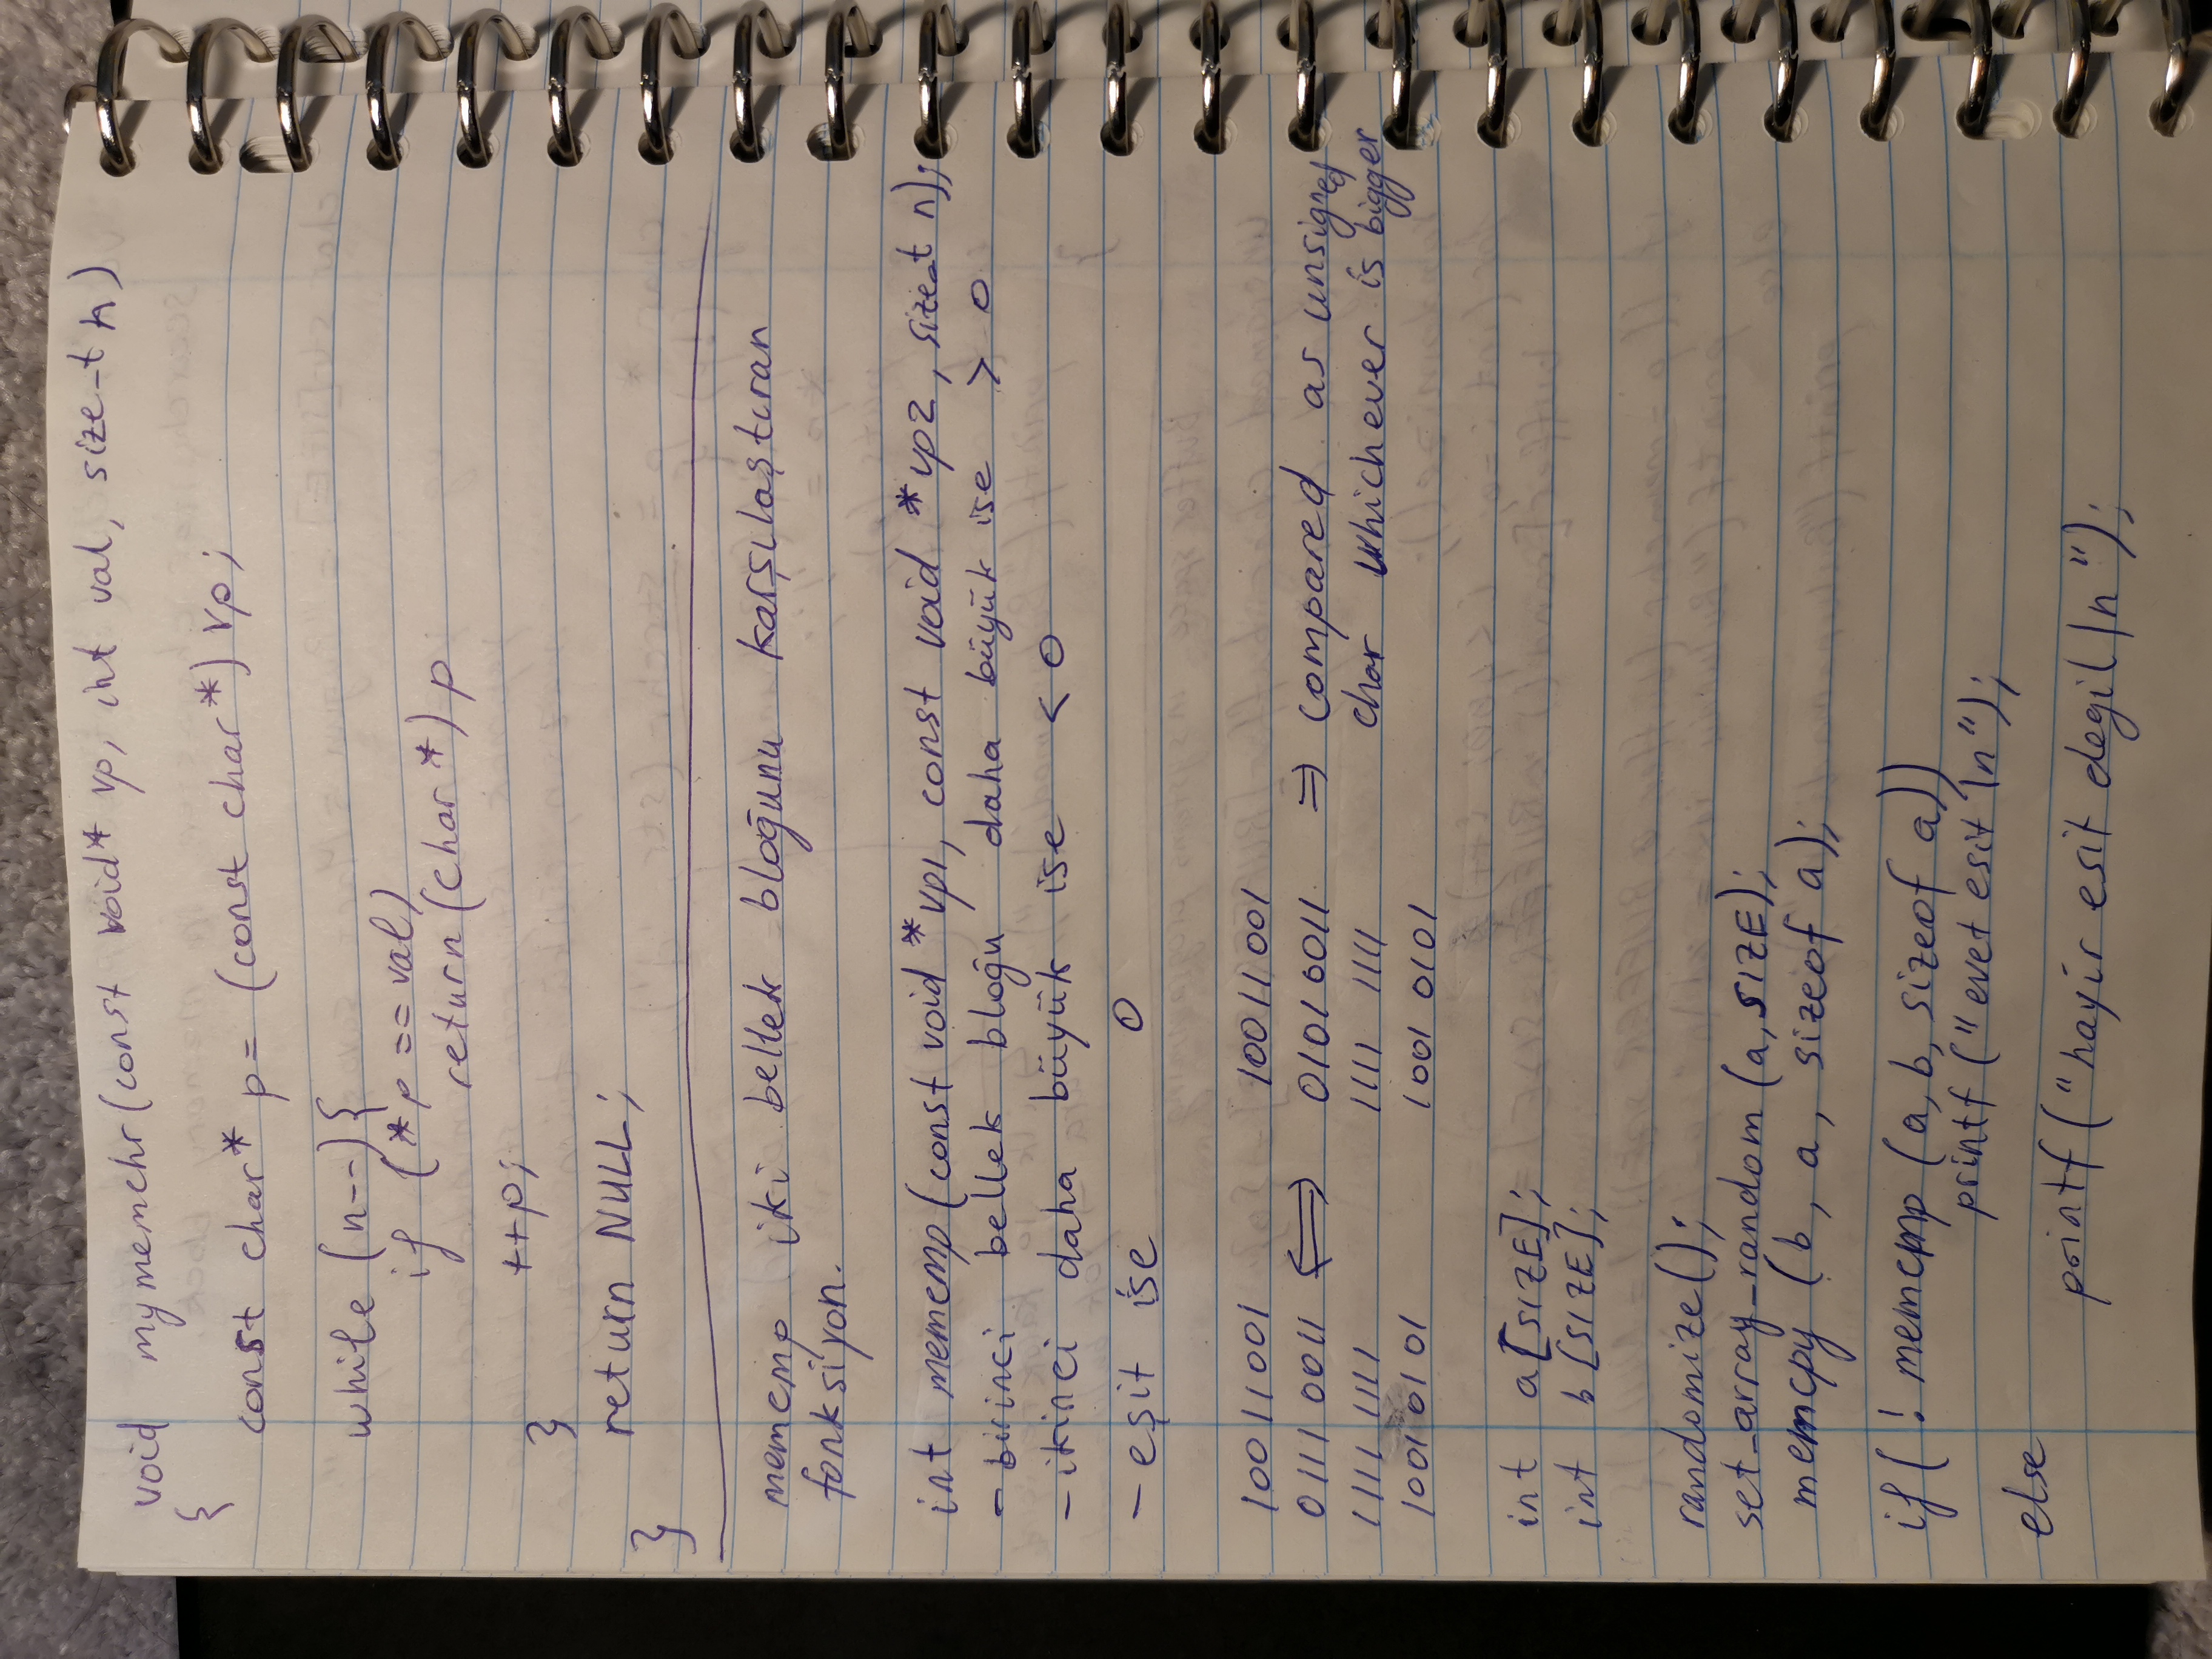 void mymemchr(const void* vp, int val, size_t n)
{
const char* p = (const char*) vp;
while (n--){
if (*p == val)
return (char*) p
++p;
}
return NULL;
}
memcmp iki bellek bloğunu karşılaştıran
fonksiyon.
int memcmp(const void *vp1, const void *vp2, size_t n);
- birinci bellek bloğu daha büyük ise > 0
- ikinci daha büyük ise < 0
- eşit ise 0
10011001 10011001
01110011 ⟺ 01010011 ⇒ compared as unsigned
1111 1111 1111 1111 char whichever is bigger
1001 0101 1001 0101
int a[SIZE];
int b[SIZE];
randomize();
set_array_random (a, SIZE);
memcpy (b, a, sizeof a);
if( ! memcmp (a, b, sizeof a))
printf ("evet esit \n");
else
printf ("hayir esit degil \n");